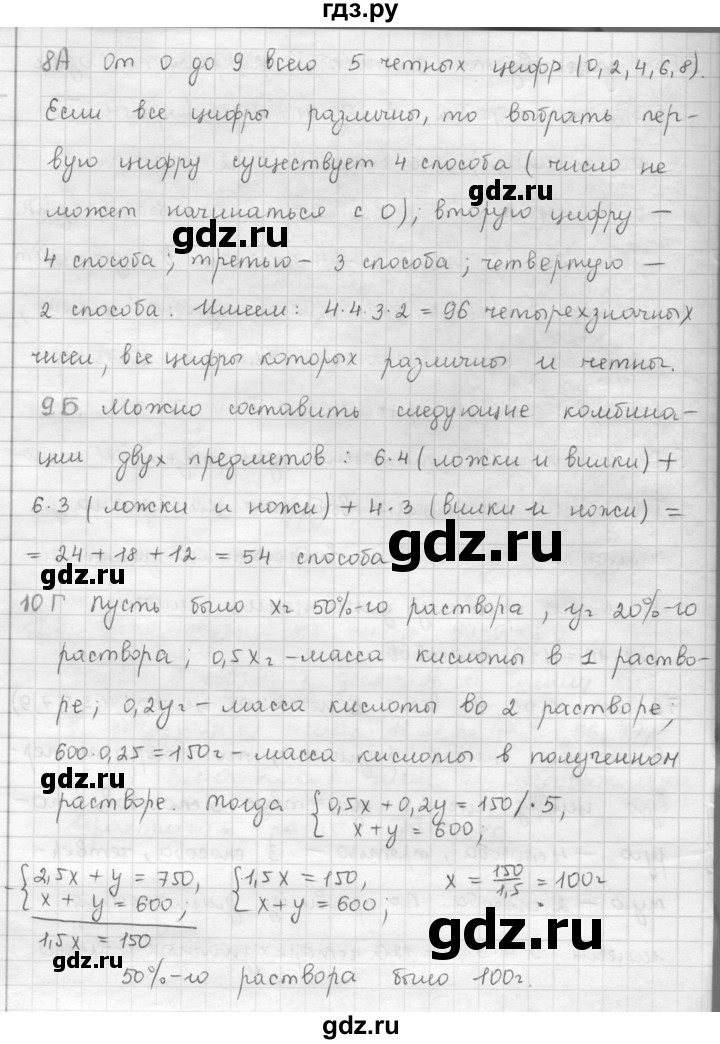 гдз.ру
8А От 0 до 9 всего 5 четных цифр (0, 2, 4, 6, 8).
Если все цифры различны, то выбрать пер-
вую цифру существует 4 способа (число не
gdz.ru
может начинаться с 0); вторую цифру –
gdz.ru
4 способа; третью – 3 способа; четвертую –
2 способа. Имеем: 4·4·3·2 = 96 четырехзначных
gdz.ru
чисел, все цифры которых различны и четны.
9Б Можно составить следующие комбина-
ции двух предметов: 6·4 (ложки и вилки) +
6·3 (ложки и ножи) + 4·3 (вилки и ножи) =
gdz.ru
= 24 + 18 + 12 = 54 способа
10Г Пусть было xг 50%-го раствора, yг 20%-го
раствора; 0,5xг – масса кислоты в 1 раство-
ре; 0,2yг – масса кислоты во 2 растворе;
600·0,25 = 150г – масса кислоты в полученном
gdz.ru
растворе. Тогда {0,5x + 0,2y = 150 /·5,
x + y = 600;
gdz.ru
{2,5x + y = 750, {1,5x = 150, x = 150/1,5 = 100г
– x + y = 600; x + y = 600;
gdz.ru
1,5x = 150
gdz.ru
50%-го раствора было 100г.
gdz.ru